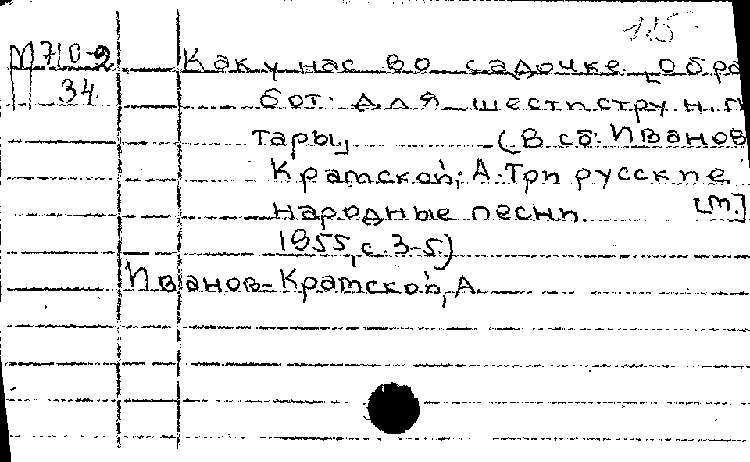 1.15
М 710-2
34
Как у нас во садочке. [Обра
бот. для шеститстру н. г
тары] (В сб: Иванов
Кратской, А. Три русские
народные песни. [М.]
1955, с. 3-5)
Иванов-Кратской, А.